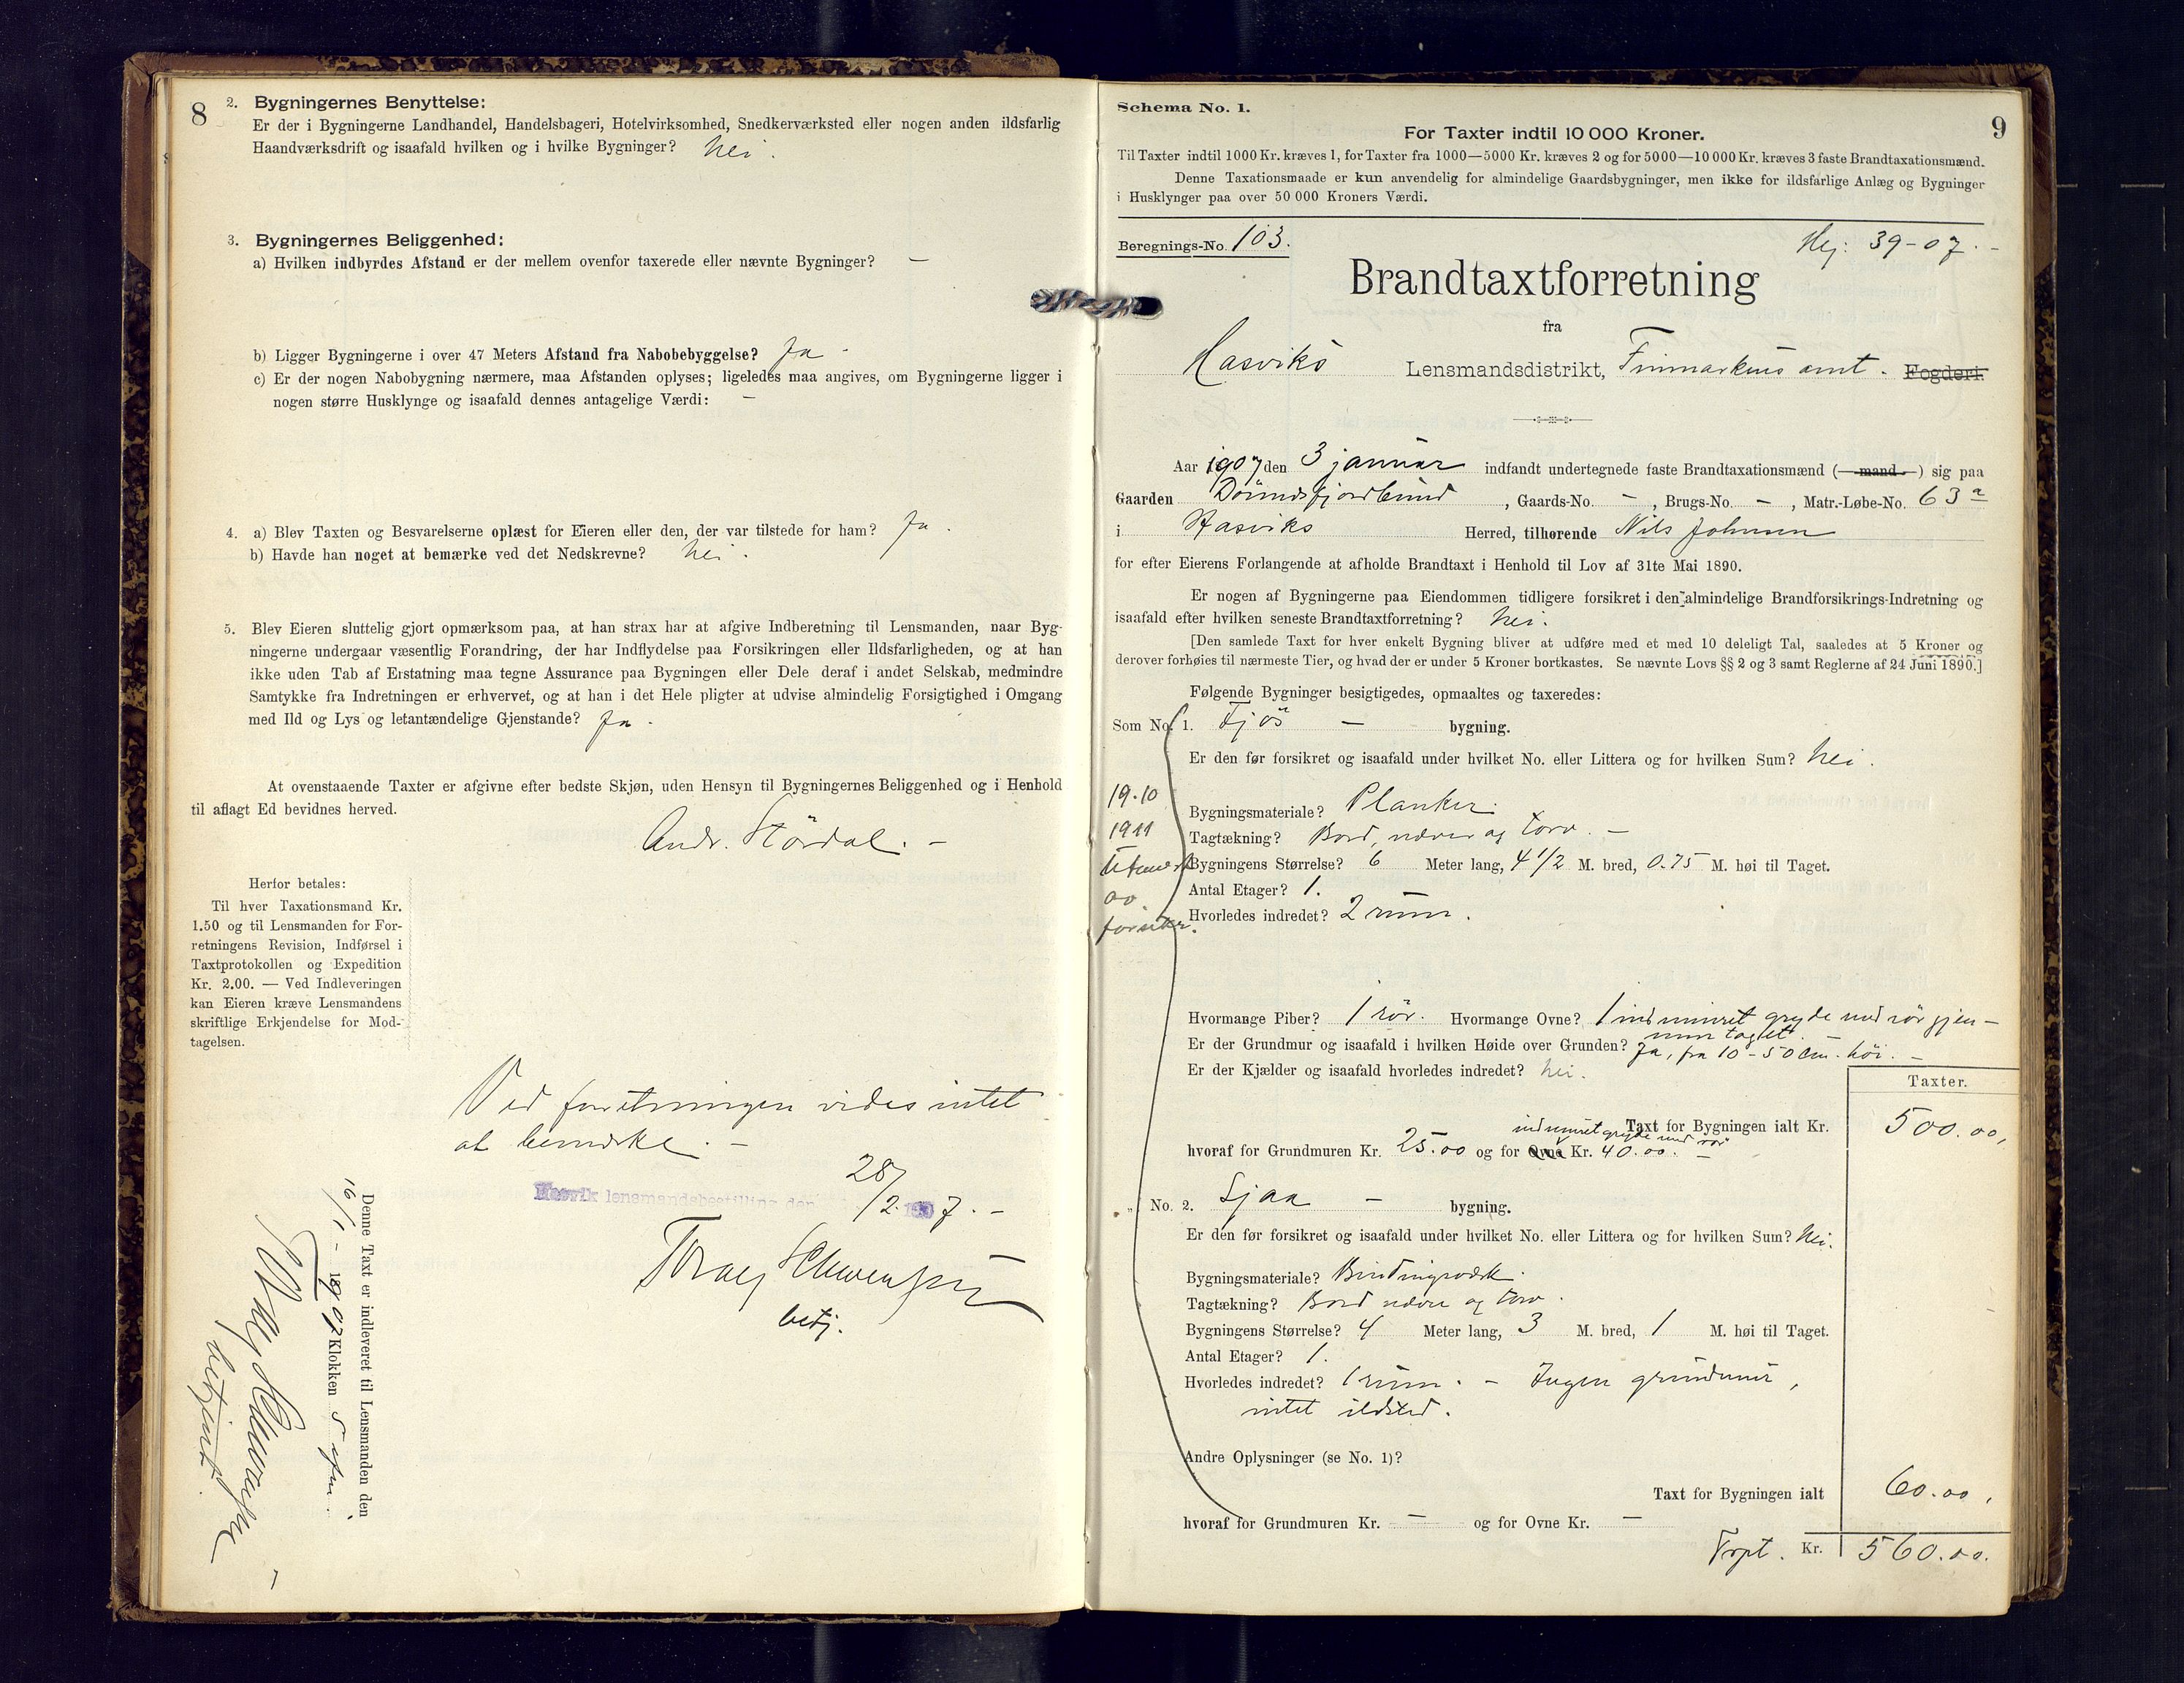 8
2. Bygningernes Benyttelse:
Er der i Bygningerne Landhandel, Handelsbageri, Hotelvirksomhed, Snedkerværksted eller nogen anden ildsfarlig
Haandværksdrift og isaafald hvilken og i hvilke Bygninger? Nei.
3. Bygningernes Beliggenhed:
a) Hvilken indbyrdes Afstand er der mellem ovenfor taxerede eller nævnte Bygninger? —
b) Ligger Bygningerne i over 47 Meters Afstand fra Nabobebyggelse? Ja.
c) Er der nogen Nabobygning nærmere, maa Afstanden oplyses; ligeledes maa angives, om Bygningerne ligger i
nogen større Husklynge og isaafald dennes antagelige Værdi: —
4. a) Blev Taxten og Besvarelserne oplæst for Eieren eller den, der var tilstede for ham? Ja.
b) Havde han noget at bemærke ved det Nedskrevne? Nei.
5. Blev Eieren sluttelig gjort opmærksom paa, at han strax har at afgive Indberetning til Lensmanden, naar Byg-
ningerne undergaar væsentlig Forandring, der har Indflydelse paa Forsikringen eller Ildsfarligheden, og at han
ikke uden Tab af Erstatning maa tegne Assurance paa Bygningen eller Dele deraf i andet Selskab, medmindre
Samtykke fra Indretningen er erhvervet, og at han i det Hele pligter at udvise almindelig Forsigtighed i Omgang
med Ild og Lys og letantændelige Gjenstande? Ja.
At ovenstaaende Taxter er afgivne efter bedste Skjøn, uden Hensyn til Bygningernes Beliggenhed og i Henhold
til aflagt Ed bevidnes herved.
Andr. Stördal. —
Herfor betales:
Til hver Taxationsmand Kr.
1.50 og til Lensmanden for For-
retningens Revision, Indførsel i
Taxtprotokollen og Expedition
Kr. 2.00. — Ved Indleveringen
kan Eieren kræve Lensmandens
skriftlige Erkjendelse for Mod-
tagelsen.
Ved forretningen vides intet
at bemærke. —
Hasvik lensmandsbestilling den 28/2. 1907. —
betj.
Denne Taxt er indleveret til Lensmanden den
16/1 - 1907 Klokken 5 efm.
betjent.
Schema No. 1.
9
For Taxter indtil 10 000 Kroner.
Til Taxter indtil 1000 Kr. kræves 1, for Taxter fra 1000—5000 Kr. kræves 2 og for 5000—10 000 Kr. kræves 3 faste Brandtaxationsmænd.
Denne Taxationsmaade er kun anvendelig for almindelige Gaardsbygninger, men ikke for ildsfarlige Anlæg og Bygninger
i Husklynger paa over 50 000 Kroners Værdi.
Beregnings-No. 103.
39-07. -
Brandtaxtforretning
fra
Hasviks Lensmandsdistrikt, Finmarkens amt. Fogderi.
Aar 1907 den 3 januar indfandt undertegnede faste Brandtaxationsmænd (—mand—) sig paa
Gaarden Dönnesfjordbund, Gaards-No. —, Brugs-No. —, Matr.-Løbe-No. 63a
i Hasviks Herred, tilhørende Nils Johnsen
for efter Eierens Forlangende at afholde Brandtaxt i Henhold til Lov af 31te Mai 1890.
Er nogen af Bygningerne paa Eiendommen tidligere forsikret i den almindelige Brandforsikrings-Indretning og
isaafald efter hvilken seneste Brandtaxtforretning? Nei.
[Den samlede Taxt for hver enkelt Bygning bliver at udføre med et med 10 deleligt Tal, saaledes at 5 Kroner og
derover forhøies til nærmeste Tier, og hvad der er under 5 Kroner bortkastes. Se nævnte Lovs §§ 2 og 3 samt Reglerne af 24 Juni 1890.]
Følgende Bygninger besigtigedes, opmaaltes og taxeredes:
Som No. 1. Fjös — bygning.
Er den før forsikret og isaafald under hvilket No. eller Littera og for hvilken Sum? Nei.
19.10
1911
Bygningsmateriale? Planker.
Tagtækning? Bord, næver og torv. —
Bygningens Størrelse? 6 Meter lang, 4 1/2 M. bred, 0.75 M. høi til Taget.
Antal Etager? 1.
Hvorledes indredet? 2 rum.
Hvormange Piber? 1 rör. Hvormange Ovne? 1 indmuret gryde med rör gjen-
nem taget.
Er der Grundmur og isaafald i hvilken Høide over Grunden? Ja, fra 10 - 50 cm. höi. —
Er der Kjælder og isaafald hvorledes indredet? Nei.
Taxter.
Taxt for Bygningen ialt Kr. 500.00,
indmuret gryde med rör
hvoraf for Grundmuren Kr. 25.00 og for Ovne Kr. 40.00. —
" No. 2. Sjaa — bygning.
Er den før forsikret og isaafald under hvilket No. eller Littera og for hvilken Sum? Nei.
Bygningsmateriale? Bindingsværk.
Tagtækning? Bord næver og torv.
Bygningens Størrelse? 4 Meter lang, 3 M. bred, 1 M. høi til Taget.
Antal Etager? 1.
Hvorledes indredet? 1 rum. — Ingen grundmur,
intet ildsted.
Andre Oplysninger (se No. 1)?
Taxt for Bygningen ialt 60.00,
hvoraf for Grundmuren Kr. — og for Ovne Kr. —
Trpt. Kr. 560.00.